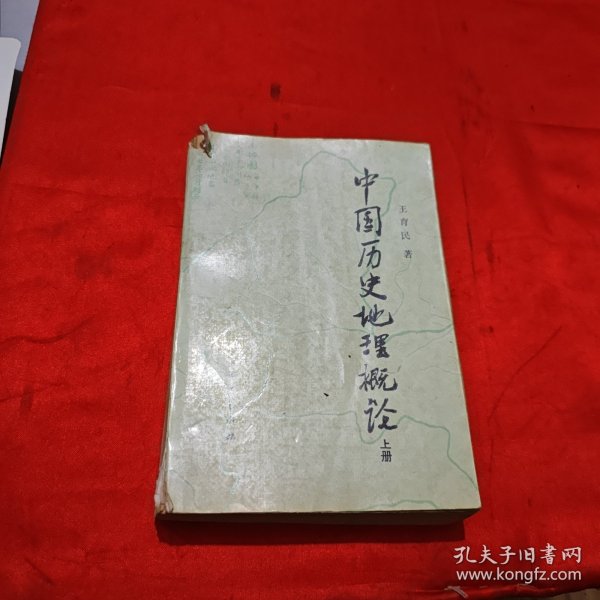 中国历史地理概论
上册
王育民 著
孔夫子旧书网
www.kongfz.com